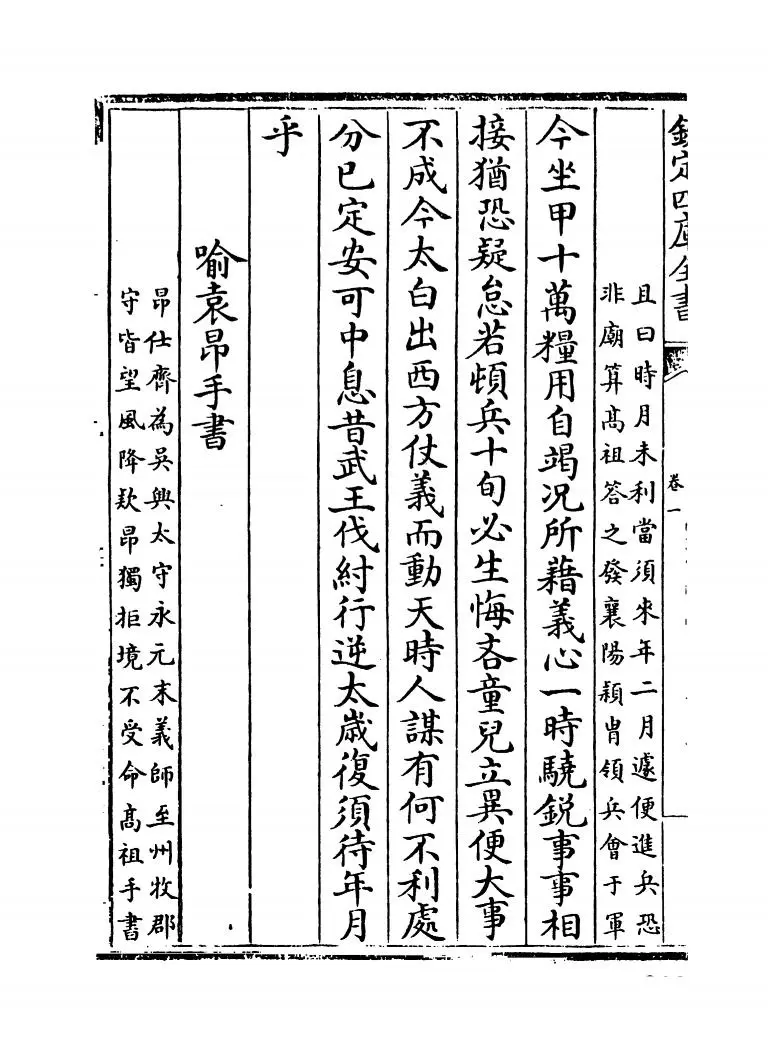 欽定四庫全書
卷一
且曰時月未利當須來年二月遽便進兵恐
非廟算髙祖答之發襄陽穎胄領兵會于軍
今坐甲十萬糧用自竭况所藉義心一時驍鋭事事相
接猶恐疑怠若頓兵十旬必生悔吝童兒立異便大事
不成今太白出西方仗義而動天時人謀有何不利處
分已定安可中息昔武王伐紂行逆太歲復須待年月
乎
喻袁昂手書
昂仕齊為吳興太守永元末義師至州牧郡
守皆望風降欵昂獨拒境不受命髙祖手書